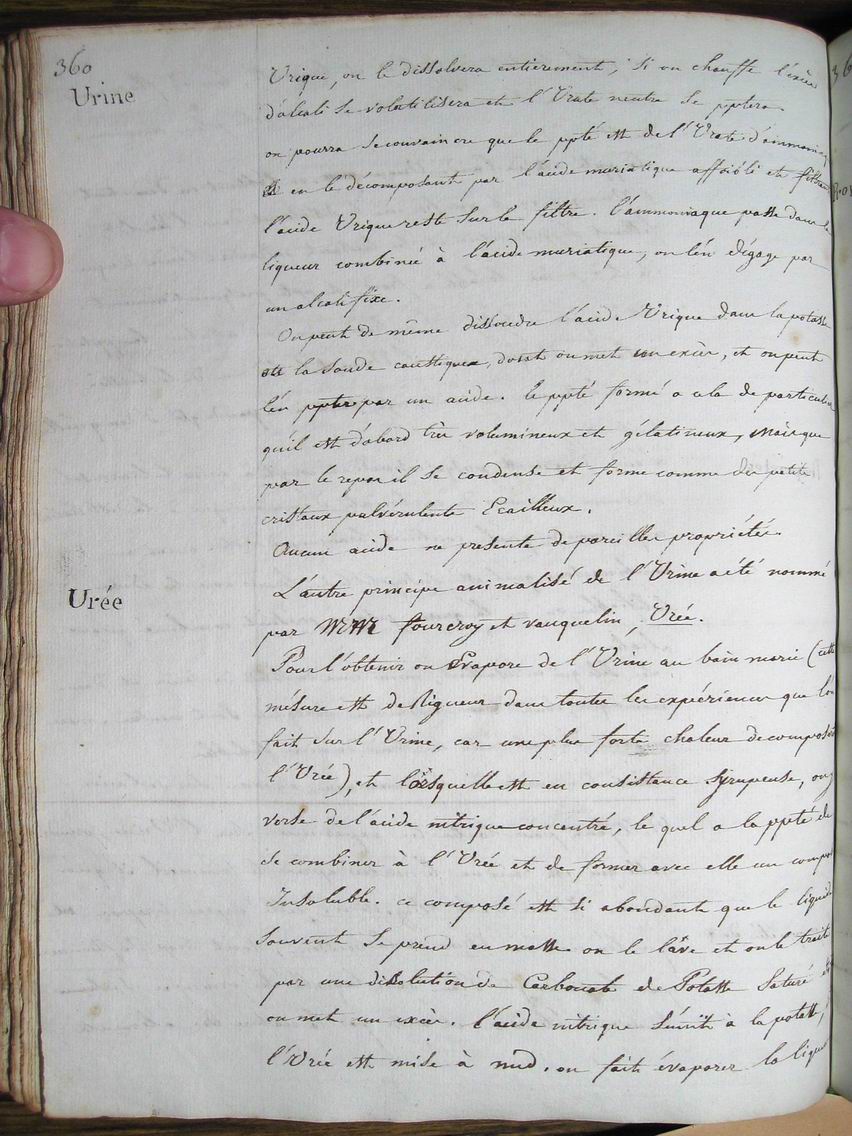 360
Urine
Urique, on le dissolvera entierement, Si on chauffe l'éxès
d'alcali se volatilisera et l'Urate neutre se pptera.
on pourra se convaincre que le ppté est de l'Urate d'ammoniaq
en le décomposant par l'acide muriatique affoibli et filtrant
l'acide Urique reste sur le filtre. l'ammoniaque passe dans la
liqueur combinée à l'acide muriatique, on l'én dégage par
un alcali fixe.
On peut de même dissoudre l'acide Urique dans la potasse
ou la Soude caustique, dont on met un exèes, et on peut
l'én ppter par un acide. le ppté formé a cela de particulier
qu'il est d'abord très volumineux et gélatineux, mais que
par le repos il se condense et forme comme des petits
cristaux pulvérulents Ecailleux.
Aucun acide ne presente de pareilles propriétés.
Urée
L'autre principe animalisé de l'Urine a été nommé
par MM fourcroy et vauquelin, Urée.
Pour l'obtenir on Evapore de l'Urine au bain marie (cette
mésure est de Rigueur dans toutes les expériences que l'on
fait sur l'Urine, car une plus forte chaleur decomposerait
l'Urée), et lorsquelle est en consistance Syrupeuse, on y
verse de l'acide nitrique concentré, le quel a la ppté de
se combiner à l'Urée et de former avec elle un composé
Insoluble. ce composé est si abondant que le liquide
souvent se prend en masse on le lave et on le traite
par une dissolution de Carbonate de Potasse Saturé et
on met un exèes. l'acide nitrique s'unit à la potasse,
l'Urée est mise à nud. on fait évaporer la liqueur